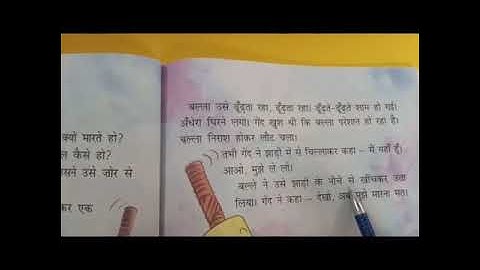 क्यों मारते हो?
कैसे हो?
उसे ज़ोर से
कर एक
बल्ला उसे ढूँढ़ता रहा, ढूँढ़ता रहा। ढूँढ़ते-ढूँढ़ते शाम हो गई।
अँधेरा घिरने लगा। गेंद खुश थी कि बल्ला परेशान हो रहा है।
बल्ला निराश होकर लौट चला।
तभी गेंद ने झाड़ी में से चिल्लाकर कहा – मैं यहाँ हूँ।
आओ, मुझे ले लो।
बल्ले ने उसे झाड़ी के नीचे से खींचकर उठा
लिया। गेंद ने कहा – देखो, अब मुझे मारना मत।